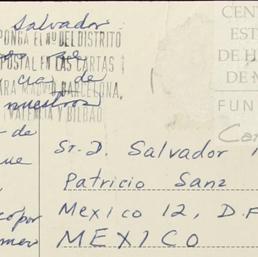 Salvador
PONGA EL Nº DEL DISTRITO
POSTAL EN LAS CARTAS
PARA MADRID, BARCELONA,
VALENCIA Y BILBAO
de
cia de
nuestros
de
que
co por
mero
CEN
EST
DE H
DE M
FUN
Sr. D. Salvador
Patricio Sanz
Mexico 12, D.F
MEXICO